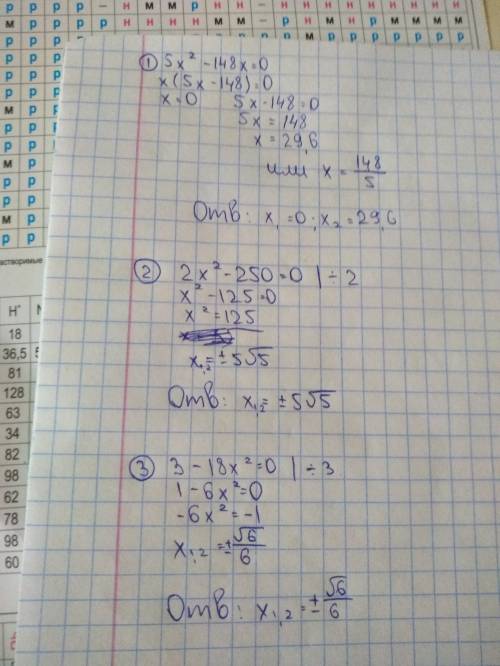 р р р р – н м м р н н – н н н н н н н н
① 5x² - 148x = 0
x(5x - 148) = 0
x = 0 5x - 148 = 0
5x = 148
x = 29,6
или x = 148/5
Отв: x₁ = 0; x₂ = 29,6
② 2x² - 250 = 0 | ÷ 2
x² - 125 = 0
x² = 125
x₁,₂ = ± 5√5
Отв: x₁,₂ = ± 5√5
③ 3 - 18x² = 0 | ÷ 3
1 - 6x² = 0
-6x² = -1
x₁,₂ = ± √6/6
Отв: x₁,₂ = ± √6/6
астворимые
H⁺
18
36,5 5
81
128
63
34
82
98
62
78
98
60